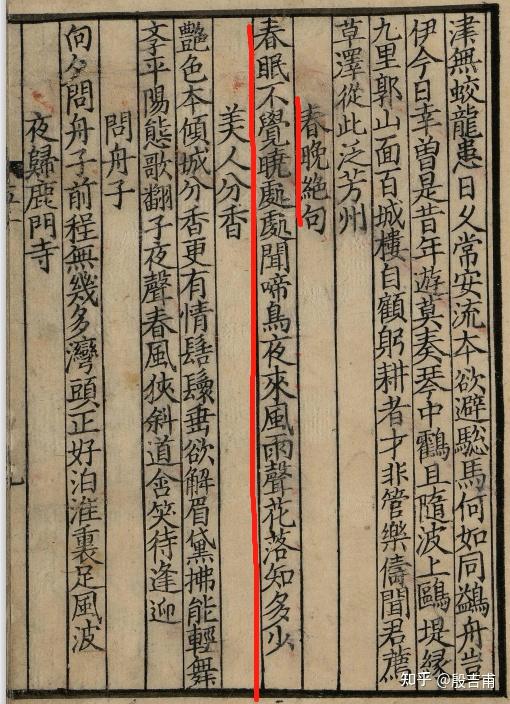 津無蛟龍患日夕常安流本欲避驄馬何如同鷁舟豈
伊今日幸曽是昔年遊莫奏琴中鶴且隨波上鷗堤緣
九里郭山面百城樓自顧躬耕者才非管樂儔聞君薦
草澤從此泛芳州
春晚絕句
春眠不覺曉處處聞啼鳥夜來風雨聲花落知多少
美人分香
艷色本傾城分香更有情髻鬟垂欲解眉黛拂能輕舞
斈平陽態歌翻子夜聲春風狹斜道含笑待逢迎
問舟子
向夕問舟子前程無幾多灣頭正好泊淮裏足風波
夜歸鹿門寺
知乎 @殷吉甫